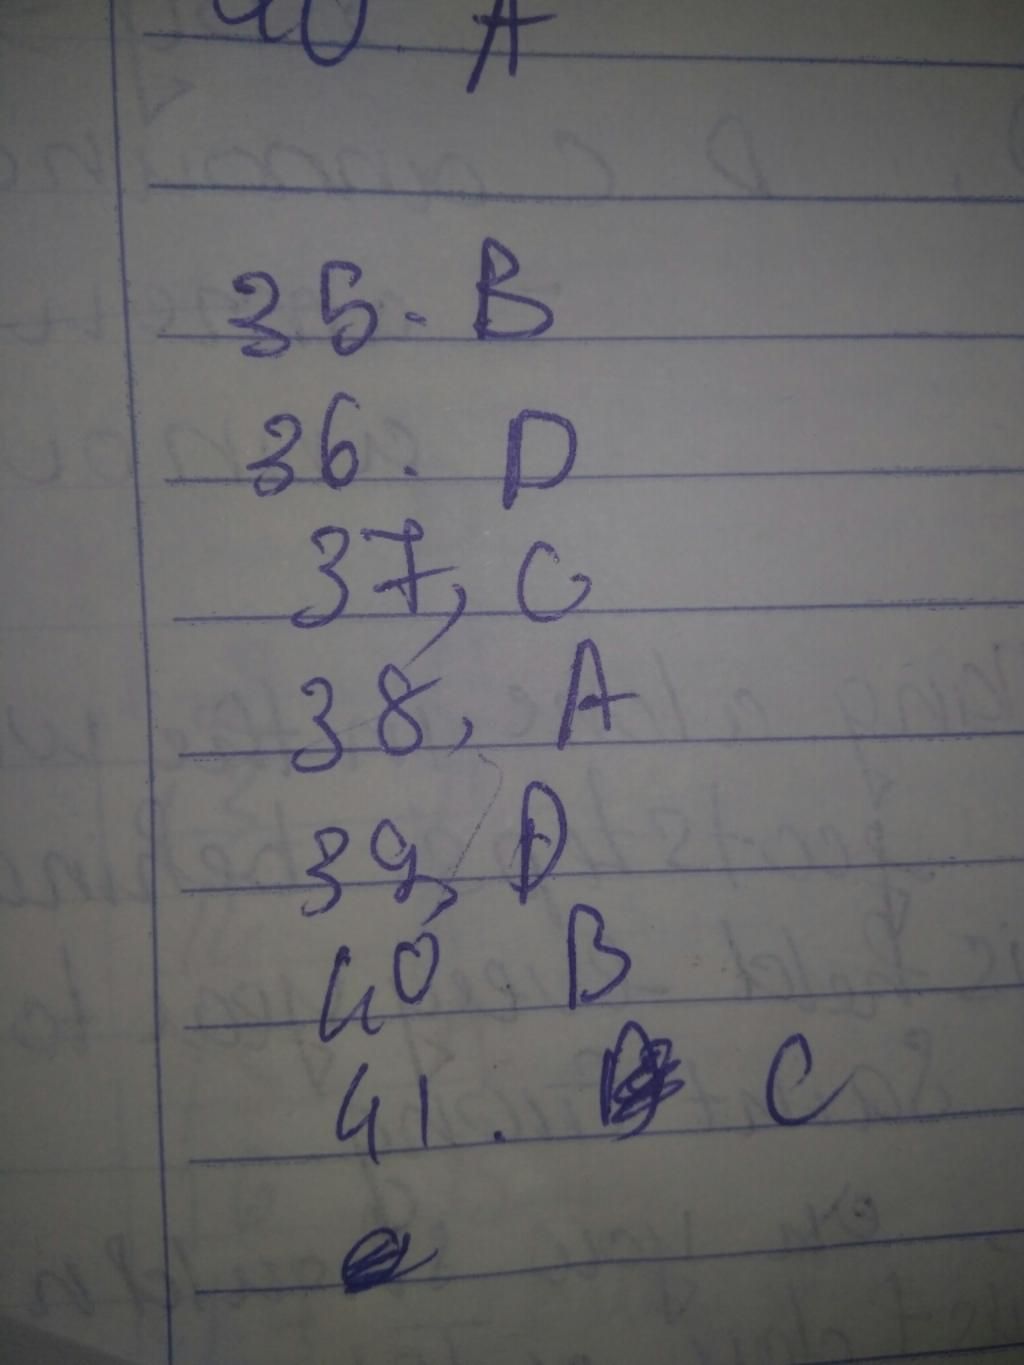 40 A
35. B
36. D
37, C
38, A
39, D
40 B
41. C